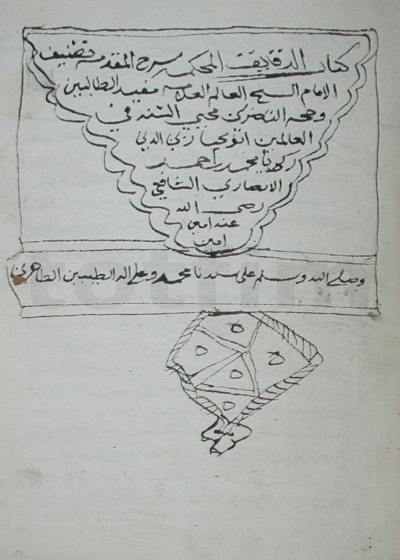 كتاب الدقايق المحكمه شرح المقدمه تصنيف
الامام الشيخ العالم العلامه مفيد الطالبين
وحجه محيي السنه في
العالمين ابو يحيى زين الدين
زكريا محمد بن احمد
الانصاري الشافعي
رضي الله
عنه امين
امين
وصلى الله وسلم على سيدنا محمد وعلى اله الطيبين الطاهرين